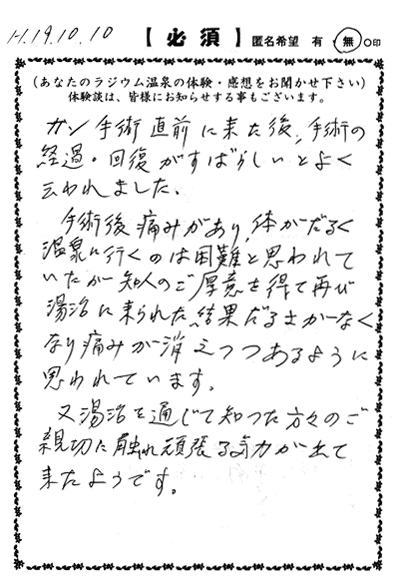 H.19.10.10
【必須】 匿名希望 有・無 ○印
(あなたのラジウム温泉の体験・感想をお聞かせ下さい)
体験談は、皆様にお知らせする事もございます。
ガン手術直前に来た後、手術の
経過・回復がすばらしいとよく
云われました、
手術後痛みがあり、体がだるく
温泉に行くのは困難と思われて
いたが知人のご厚意を得て再び
湯治に来られた結果だるさがなく
なり痛みが消えつつあるように
思われています。
又湯治を通じて知つた方々のご
親切に触れ頑張る気力が出て
来たようです。